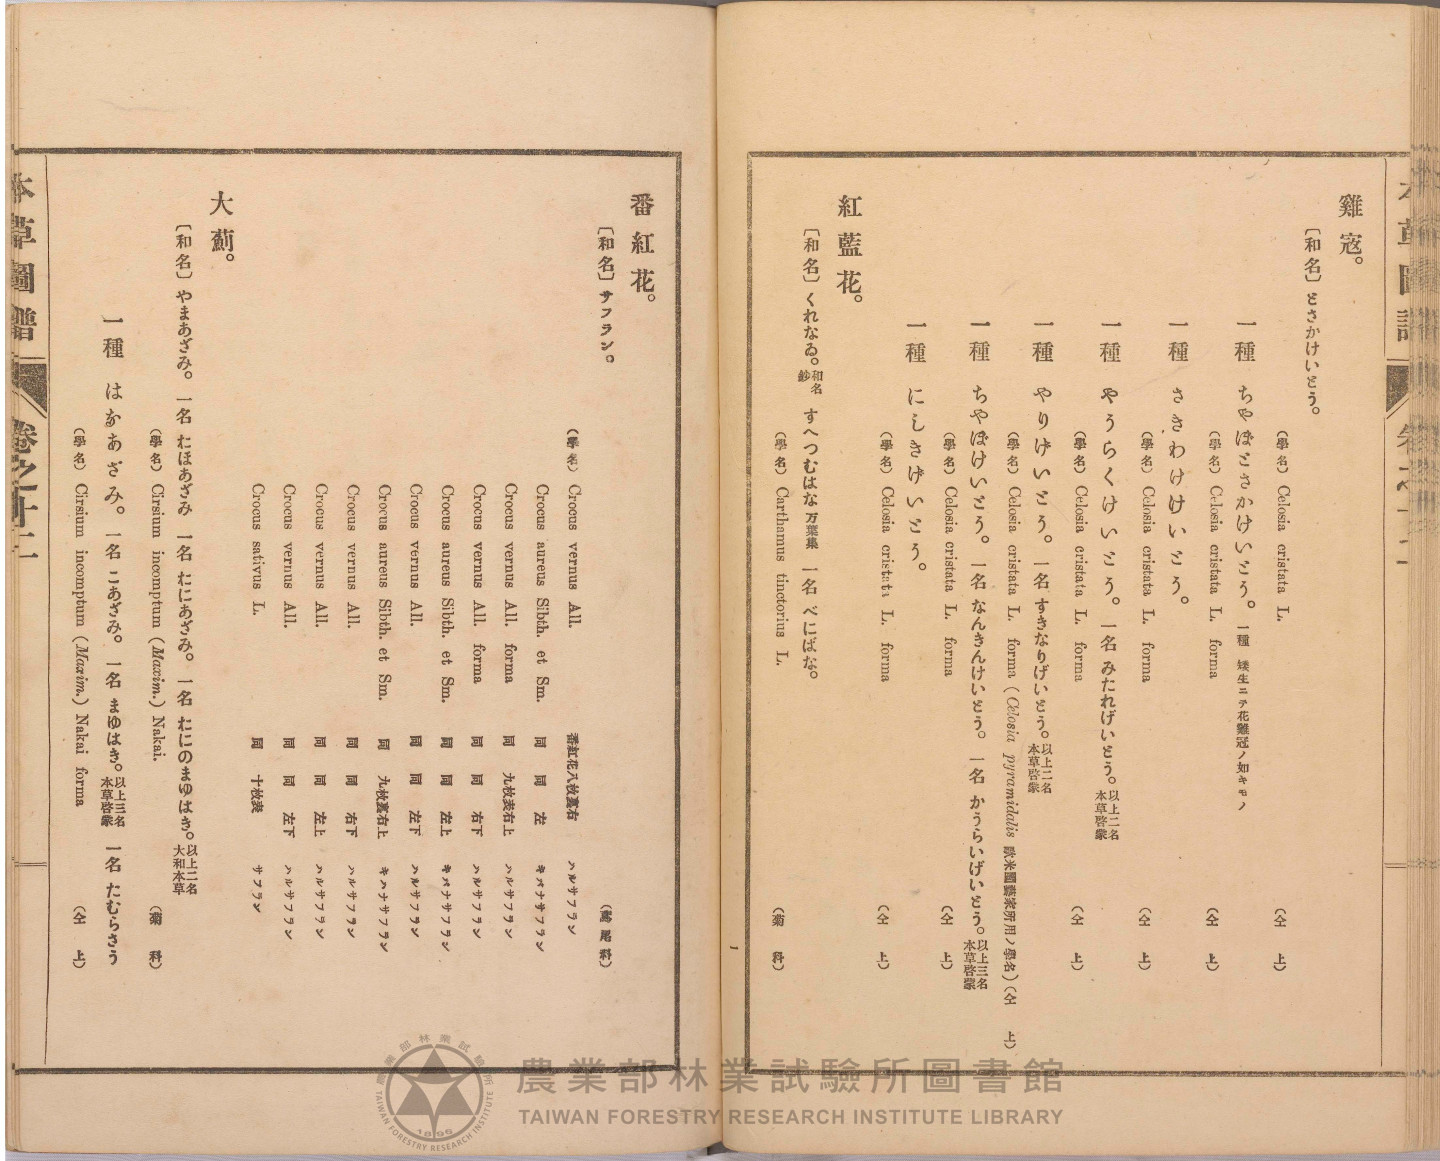 雞寇。
〔和名〕とさかけいとう。
(學名) Celosia cristata L. (仝上)
一種 ちやぼとさかけいとう。一種 矮生ニテ花雞冠ノ如キモノ
(學名) Celosia cristata L. forma (仝上)
一種 さきわけけいとう。
(學名) Celosia cristata L. forma (仝上)
一種 やうらくけいとう。一名 みたれげいとう。以上二名本草啓蒙
(學名) Celosia cristata L. forma (仝上)
一種 やりげいとう。一名 すきなりげいとう。以上二名本草啓蒙
(學名) Celosia cristata L. forma (Celosia pyramidalis 歐米園藝家所用ノ學名) (仝上)
一種 ちやぼけいとう。一名 なんきんけいとう。一名 かうらいげいとう。以上三名本草啓蒙
(學名) Celosia cristata L. forma (仝上)
一種 にしきげいとう。
(學名) Celosia cristata L. forma (仝上)
紅藍花。
〔和名〕くれなゐ。和名鈔 すへつむはな 万葉集 一名 べにばな。
(學名) Carthamus tinctorius L. (菊科)
1
番紅花。
〔和名〕サフラン。 (鳶尾科)
(學名) Crocus vernus All. 番紅花八枚裏右 ハルサフラン
Crocus aureus Sibth. et Sm. 同 同 左 キバナサフラン
Crocus vernus All. forma 同 九枚表右上 ハルサフラン
Crocus vernus All. forma 同 同 右下 ハルサフラン
Crocus aureus Sibth. et Sm. 同 同 左上 キバナサフラン
Crocus vernus All. 同 同 左下 ハルサフラン
Crocus aureus Sibth. et Sm. 同 九枚裏右上 キハナサフラン
Crocus vernus All. 同 同 右下 ハルサフラン
Crocus vernus All. 同 同 左上 ハルサフラン
Crocus vernus All. 同 同 左下 ハルサフラン
Crocus sativus L. 同 十枚表 サフラン
大薊。
〔和名〕やまあざみ。一名 たほあざみ 一名 たにあざみ。一名 たにのまゆはき。以上二名大和本草
(學名) Cirsium incomptum (Maxim.) Nakai. (菊科)
一種 はあざみ。一名 こあざみ。一名 まゆはき。以上三名本草啓蒙 一名 たむらさう
(學名) Cirsium incomptum (Maxim.) Nakai forma (仝上)
本草圖譜 卷之十二
農業部林業試驗所圖書館
TAIWAN FORESTRY RESEARCH INSTITUTE LIBRARY
農業部林業試驗所
1895
TAIWAN FORESTRY RESEARCH INSTITUTE